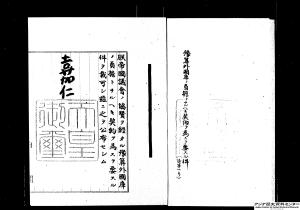 豫算外國庫ノ負擔トナルヘキ契約ヲ為スヲ要スル件
朕帝國議會ノ協賛ヲ經タル豫算外國庫
ノ負擔トナルヘキ契約ヲ為スヲ要スル
件ヲ裁可シ茲ニ之ヲ公布セシム
嘉仁
天皇
御璽
アジア歴史資料センター